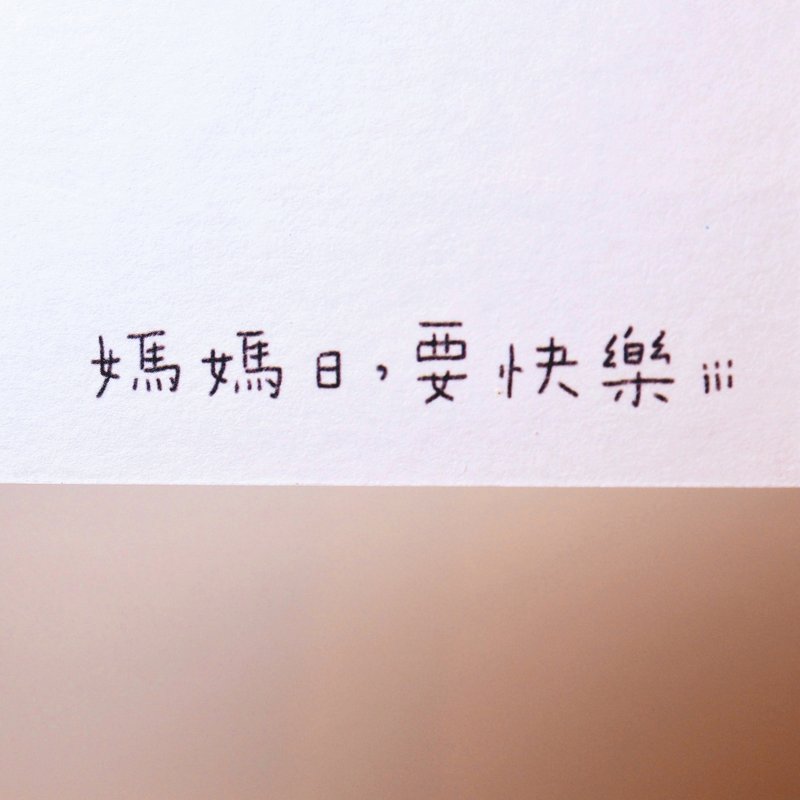 媽媽日，要快樂¡¡¡